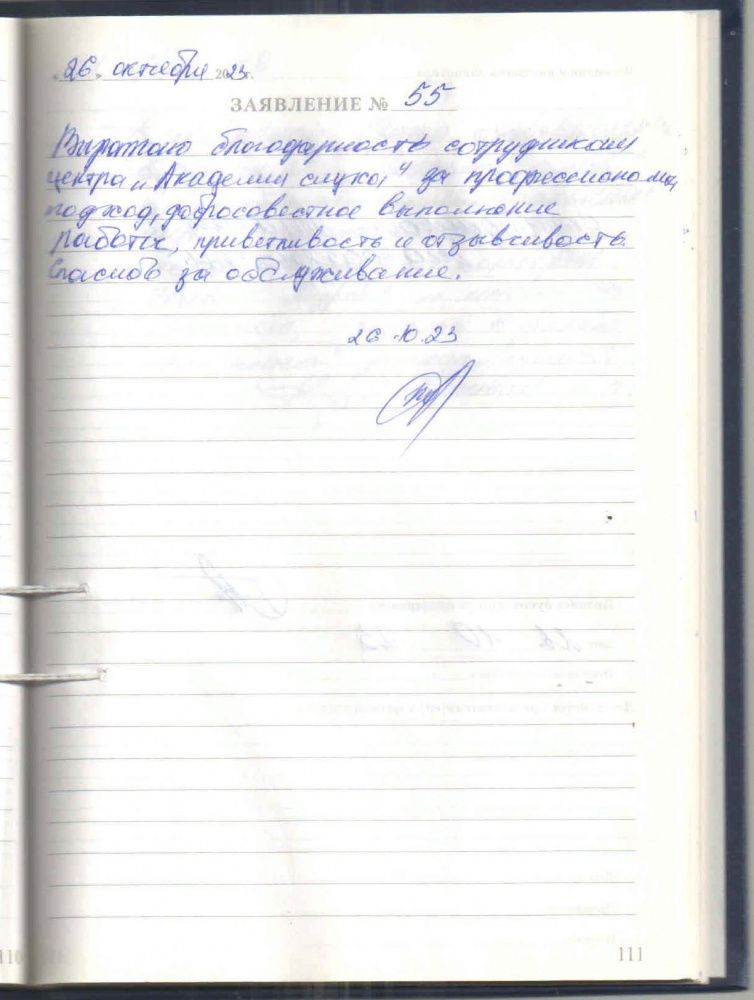 «26» октября 2023г.
ЗАЯВЛЕНИЕ № 55
Выражаю благодарность сотрудникам
центра „Академии слуха" за профессиональный
подход, добросовестное выполнение
работы, приветливость и отзывчивость.
Спасибо за обслуживание.
26.10.23
111